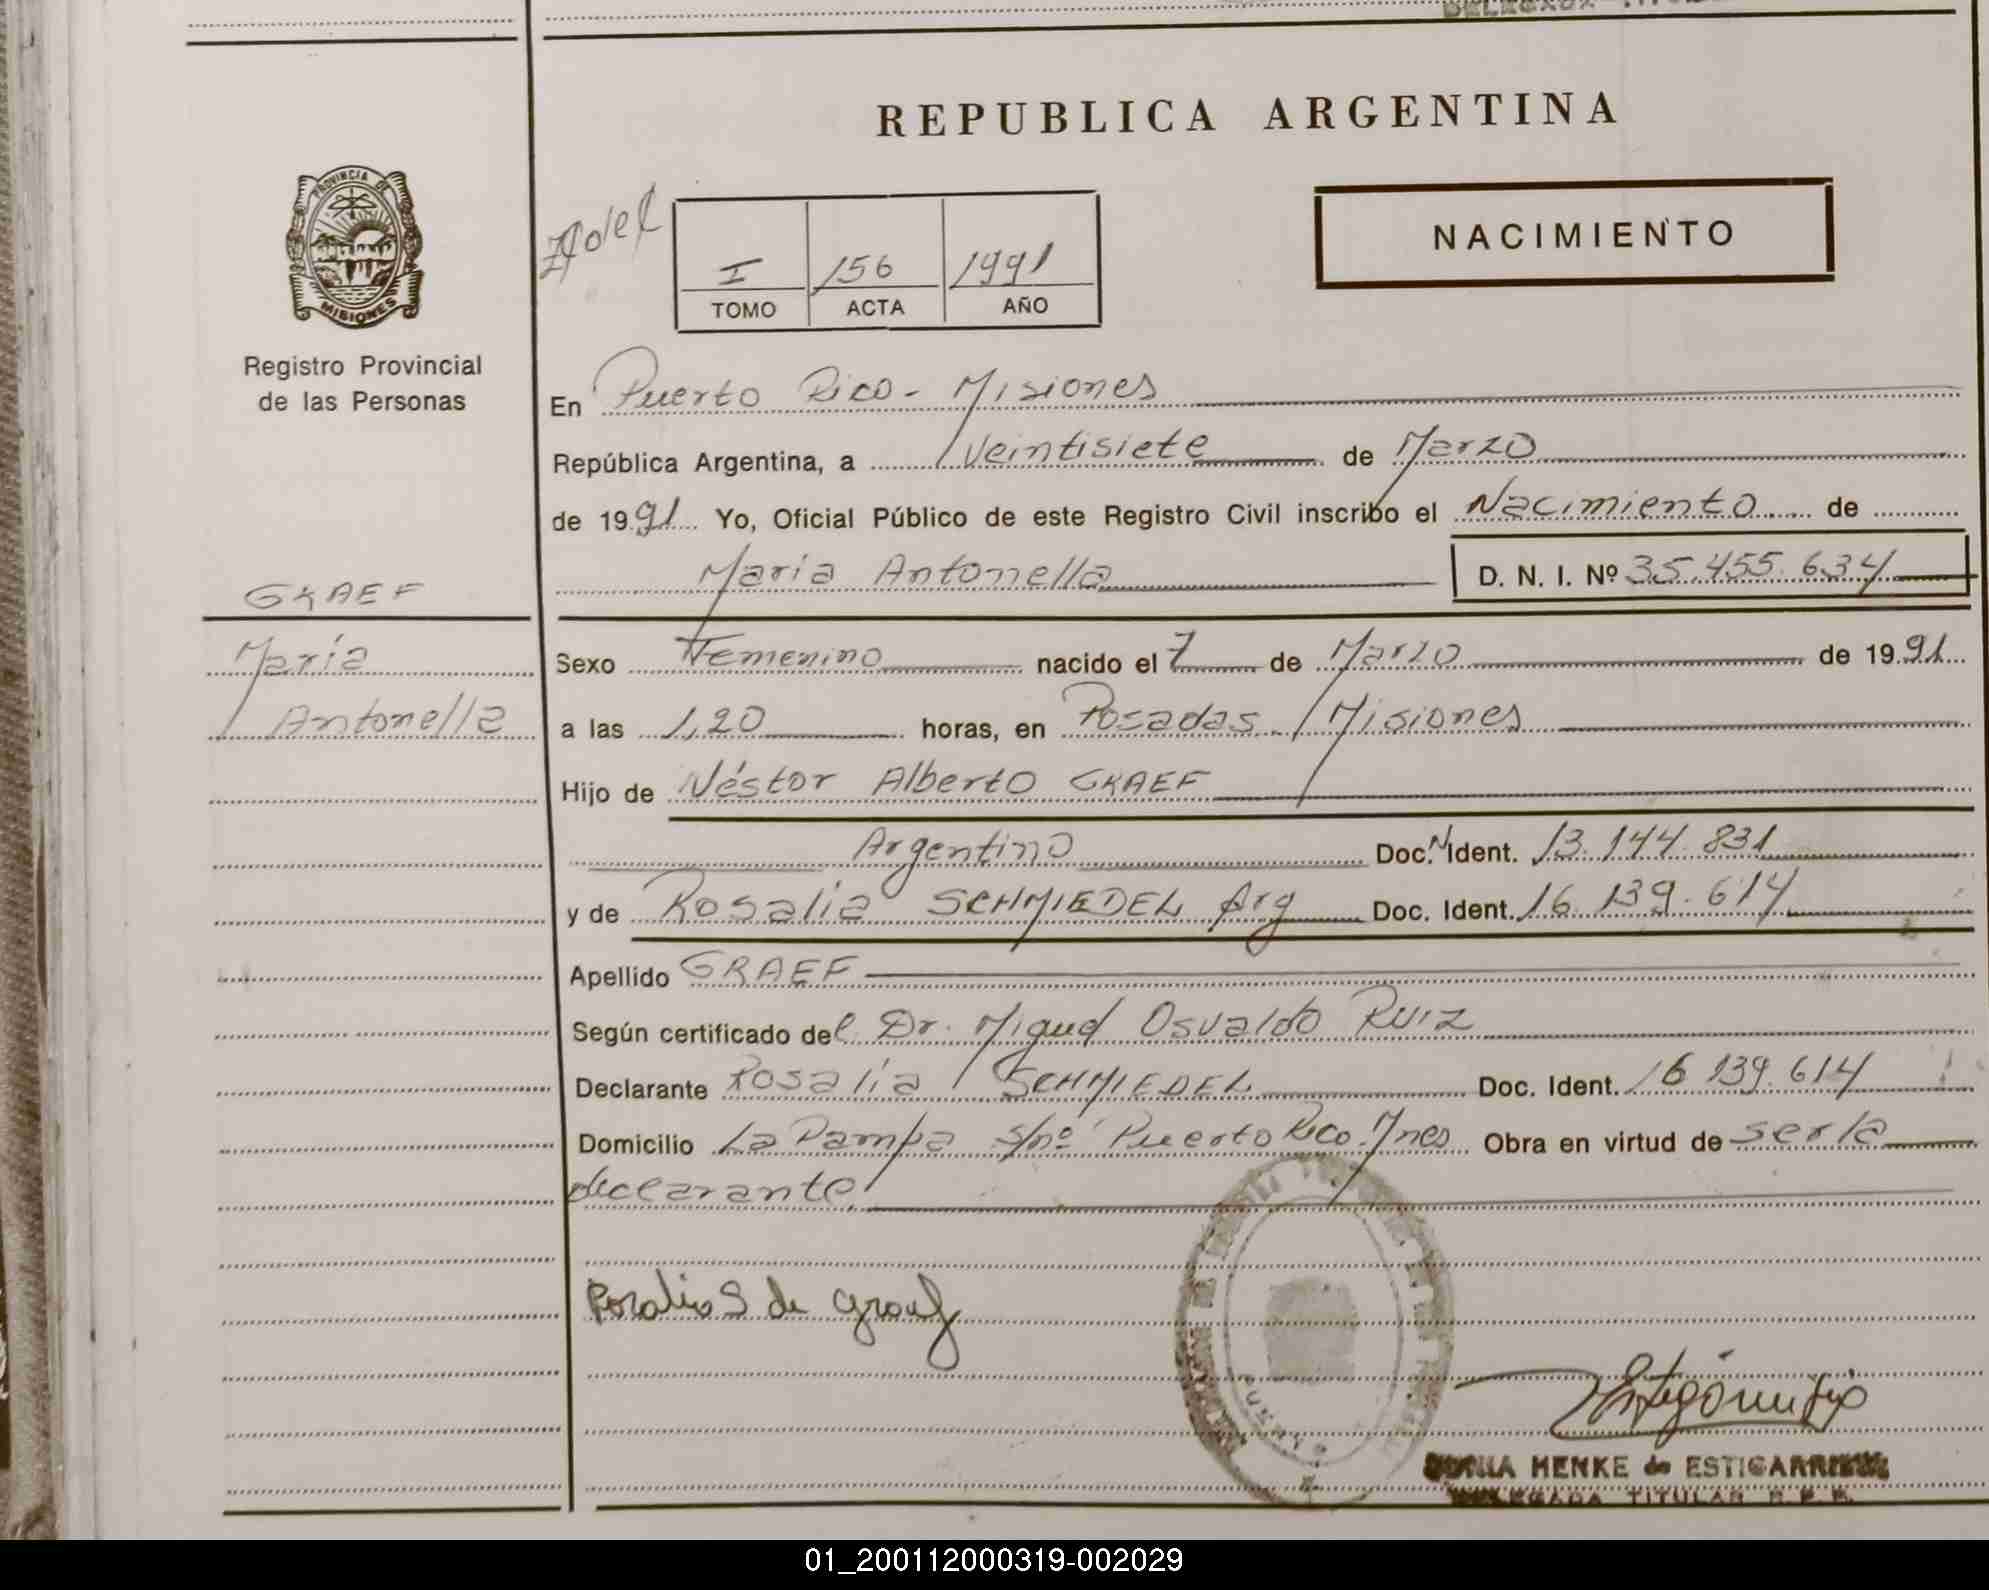 REPUBLICA ARGENTINA
PROVINCIA DE
MISIONES
Registro Provincial
de las Personas
I 156 1991
TOMO ACTA AÑO
NACIMIENTO
En Puerto Rico - Misiones
República Argentina, a veintisiete de Marzo
de 1991 Yo, Oficial Público de este Registro Civil inscribo el Nacimiento de
María Antonella D. N. I. Nº 35.455.634
GRAEF
María
Antonella
Sexo Femenino nacido el 7 de Marzo de 1991
a las 1,20 horas, en Posadas Misiones
Hijo de Néstor Alberto GRAEF
Argentino Doc. N Ident. 13.144.831
y de Rosalía SCHMIEDEL Arg Doc. Ident. 16.139.614
Apellido GRAEF
Según certificado del Dr. Miguel Osvaldo RUIZ
Declarante Rosalía SCHMIEDEL Doc. Ident. 16 139.614
Domicilio La Pampa s/nº Puerto Rico Mnes Obra en virtud de ser la
declarante
Rosalia S de Graef
HENKE de ESTIGARRIBIA
DELEGADA TITULAR R.P.P.
01_200112000319-002029